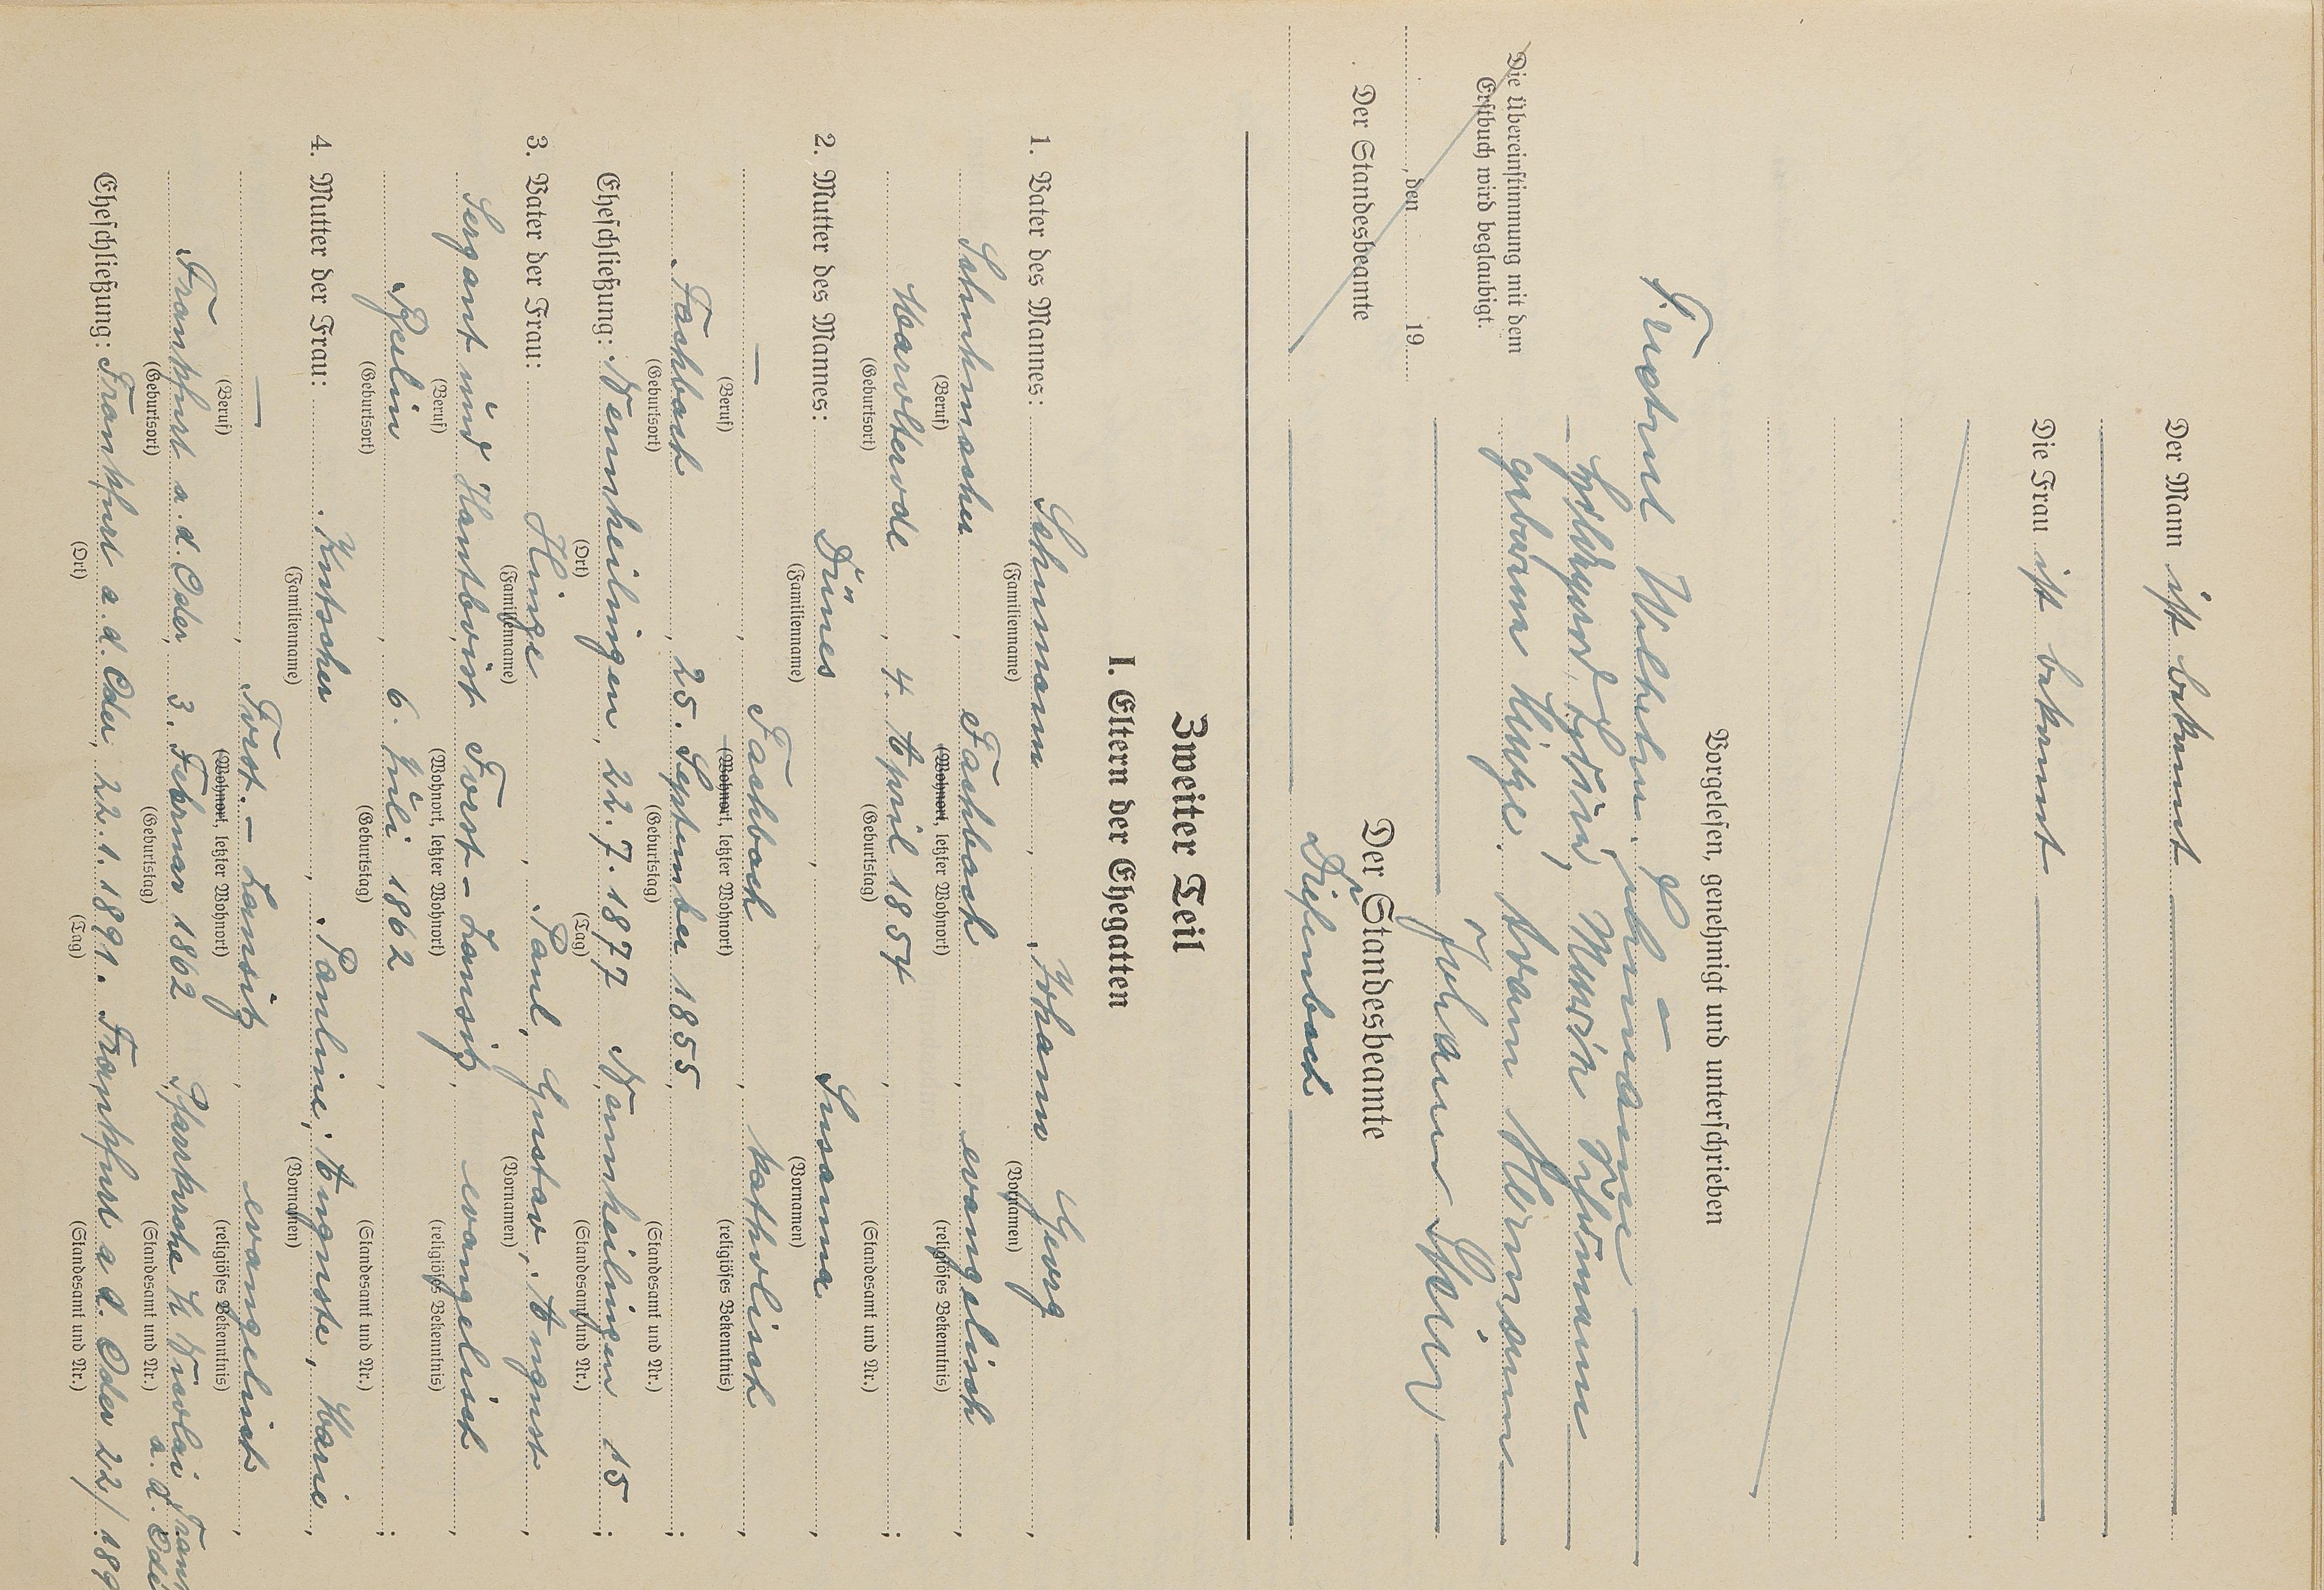 Der Mann ist bekannt
Die Frau ist bekannt
Vorgelesen, genehmigt und unterschrieben
Wilhelm Schumann
Hildegard Schumann
geborene Hinze
Johann
Der Standesbeamte
Diefenbach
Die Übereinstimmung mit dem
Erstbuch wird beglaubigt.
, den 19
Der Standesbeamte
Zweiter Teil
I. Eltern der Ehegatten
1. Vater des Mannes: Schumann, Johann Georg,
(Familienname) (Vornamen)
Schuhmacher, Fachbach, evangelisch,
(Beruf) (Wohnort, letzter Wohnort) (religiöses Bekenntnis)
4. April 1854, ;
(Geburtsort) (Geburtstag) (Standesamt und Nr.)
2. Mutter des Mannes: Dünes, Susanna,
(Familienname) (Vornamen)
—, Fachbach, katholisch,
(Beruf) (Wohnort, letzter Wohnort) (religiöses Bekenntnis)
Fachbach, 25. September 1855, ;
(Geburtsort) (Geburtstag) (Standesamt und Nr.)
Eheschließung: Wennheilingen, 22.7.1877 15;
(Ort) (Tag) (Standesamt und Nr.)
3. Vater der Frau: Hinze, Paul, Gustav, August,
(Familienname) (Vornamen)
Forst-Lausitz, evangelisch,
(Beruf) (Wohnort, letzter Wohnort) (religiöses Bekenntnis)
Berlin, 6. Juli 1862, ;
(Geburtsort) (Geburtstag) (Standesamt und Nr.)
4. Mutter der Frau: Kutscher, Pauline, Auguste, Marie,
(Familienname) (Vornamen)
—, Forst.-Lausitz, evangelisch,
(Beruf) (Wohnort, letzter Wohnort) (religiöses Bekenntnis)
Frankfurt a.d. Oder, 3. Februar 1862, Pfarrkirche
a. d.
(Geburtsort) (Geburtstag) (Standesamt und Nr.)
Eheschließung: Frankfurt a.d. Oder, 22.1.1891. Frankfurt a d. Oder 22/189
(Ort) (Tag) (Standesamt und Nr.)